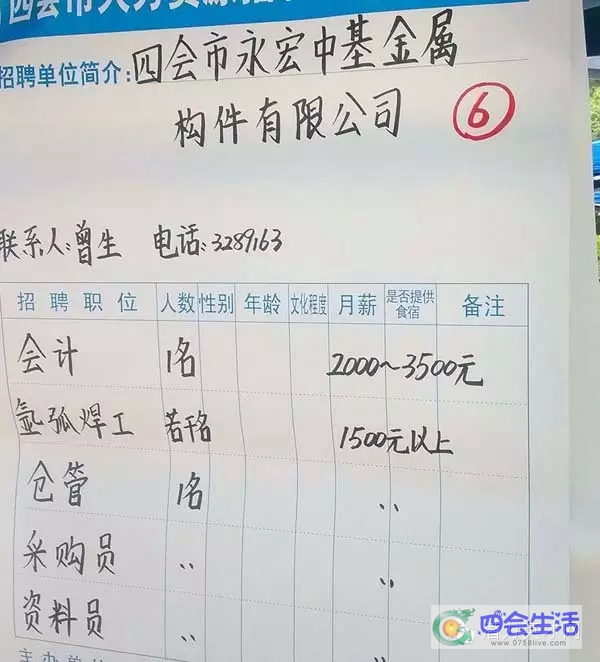 四会市人力资源
招聘单位简介:四会市永宏中基金属
构件有限公司 6
联系人:曾生 电话:3289163
招聘职位 人数 性别 年龄 文化程度 月薪 是否提供食宿 备注
会计 1名 2000~3500元
氩弧焊工 若干名 1500元以上
仓管 1名 〃
采购员 〃 〃
资料员 〃 〃
主办单位
四会生活
www.0758live.com